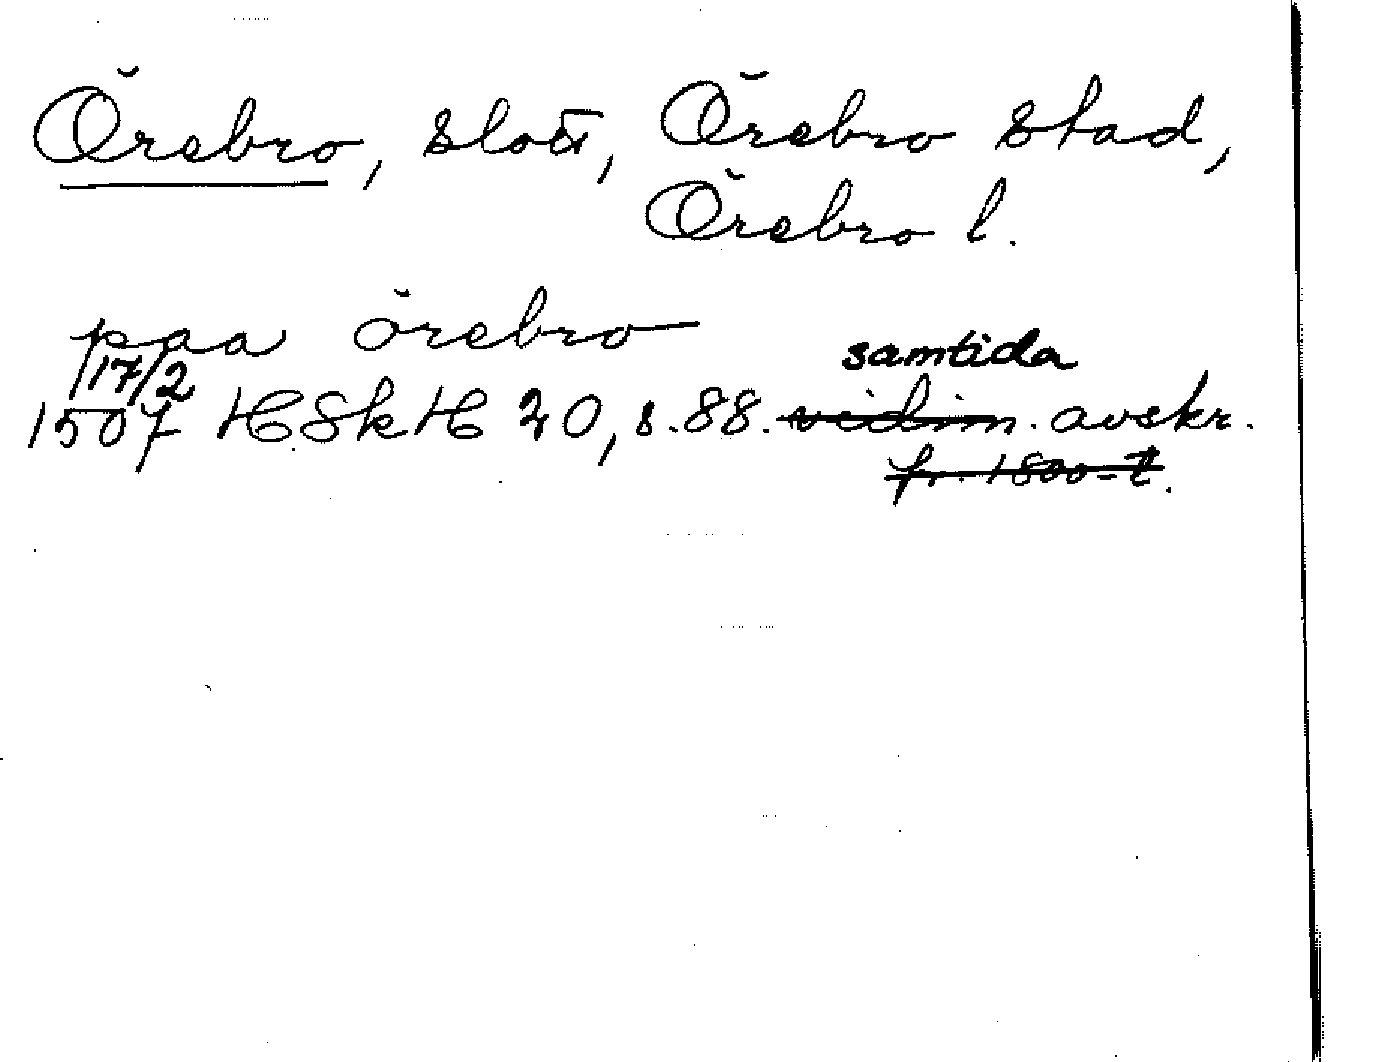 Örebro, slott, Örebro stad,
Örebro l.
paa örebro
17/2 samtida
1507 HSkH 20, s. 88. vidim. avskr.
fr. 1800-t.